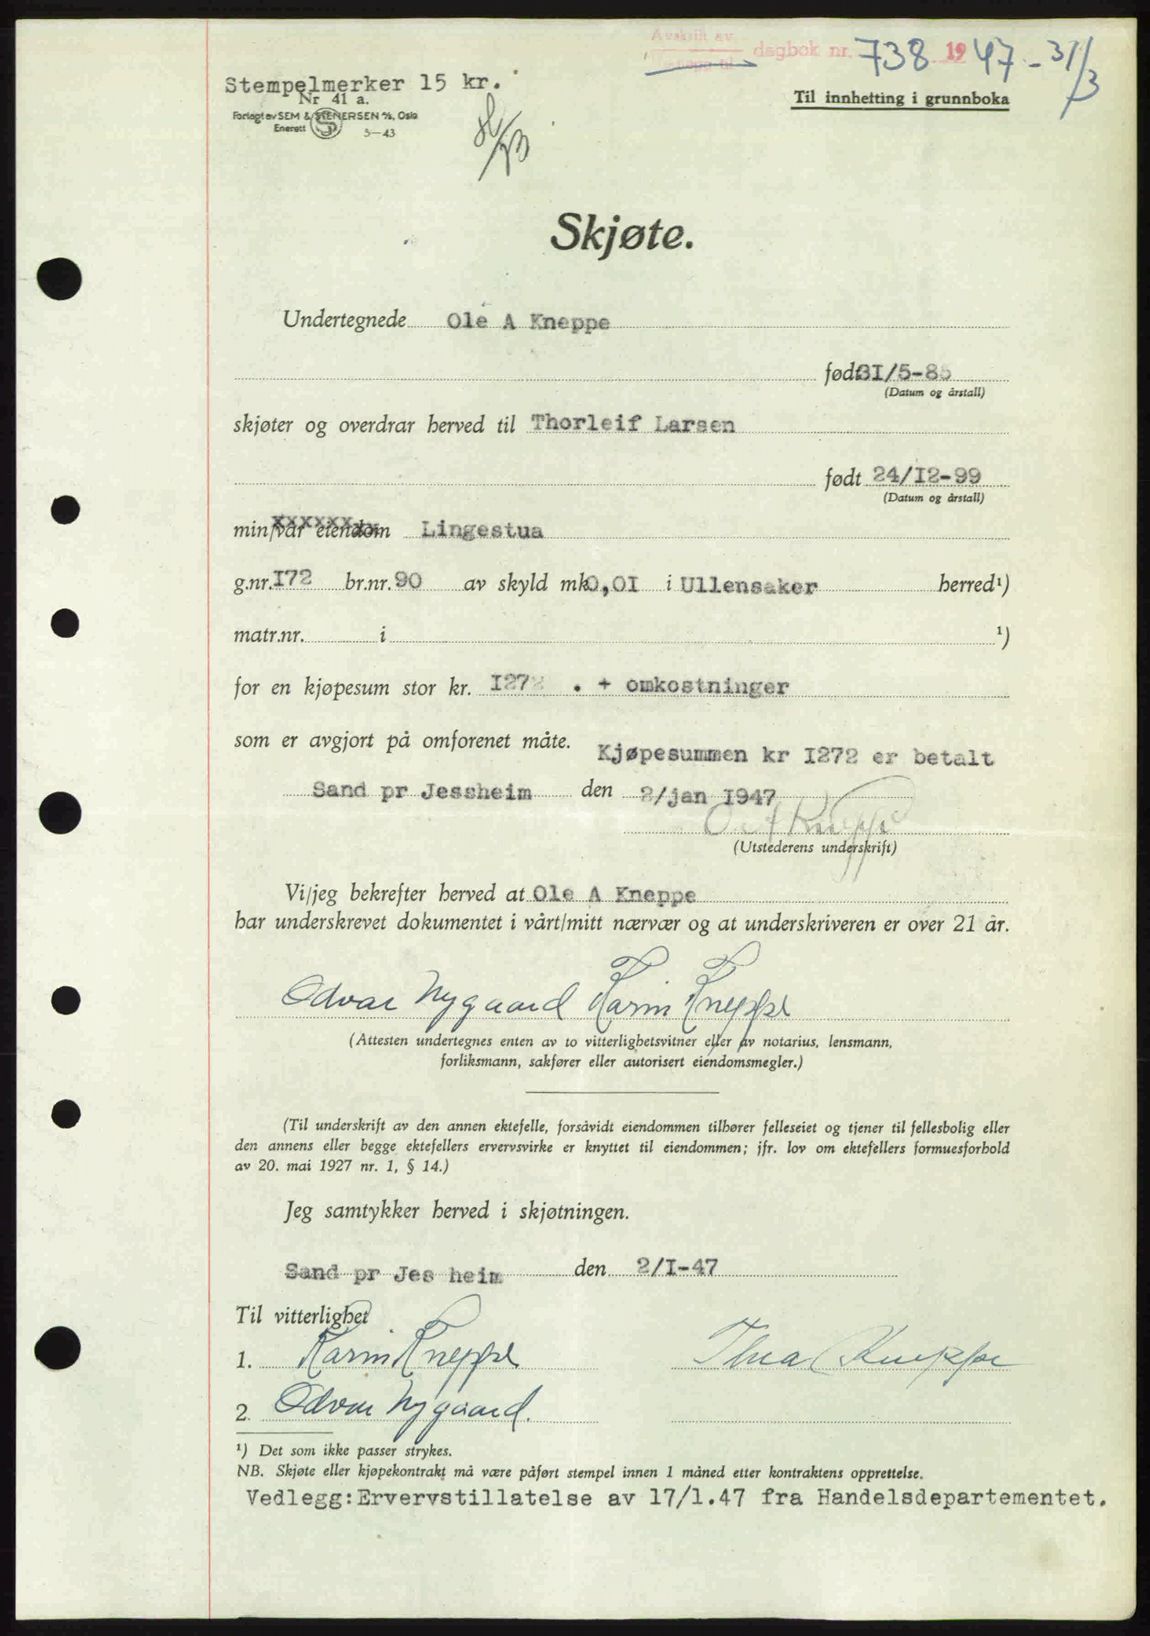 Avskrift av
dagbok nr. 738 1947 - 31/3
Stempelmerker 15 kr.
Nr 41 a.
Forlagt av SEM & STENERSEN A/S, Oslo
Enerett 5-43
Til innhetting i grunnboka
Skjøte.
Undertegnede Ole A Kneppe
født 31/5-85
(Datum og årstall)
skjøter og overdrar herved til Thorleif Larsen
født 24/I2-99
(Datum og årstall)
min/vår eiendom Lingestua
g.nr. I72 br.nr. 90 av skyld mk 0,0I i Ullensaker herred¹)
matr.nr. i ¹)
for en kjøpesum stor kr. I272 . + omkostninger
som er avgjort på omforenet måte. Kjøpesummen kr I272 er betalt
Sand pr Jessheim den 2/jan I947
O A Kneppe
(Utstederens underskrift)
Vi/jeg bekrefter herved at Ole A Kneppe
har underskrevet dokumentet i vårt/mitt nærvær og at underskriveren er over 21 år.
Odvar Nygaard Karin Kneppe
(Attesten undertegnes enten av to vitterlighetsvitner eller av notarius, lensmann,
forliksmann, sakfører eller autorisert eiendomsmegler.)
(Til underskrift av den annen ektefelle, forsåvidt eiendommen tilhører felleseiet og tjener til fellesbolig eller
den annens eller begge ektefellers ervervsvirke er knyttet til eiendommen; jfr. lov om ektefellers formuesforhold
av 20. mai 1927 nr. 1, § 14.)
Jeg samtykker herved i skjøtningen.
Sand pr Jes heim den 2/I-47
Til vitterlighet
1. Karin Kneppe Thea Kneppe
2. Odvar Nygaard.
¹) Det som ikke passer strykes.
NB. Skjøte eller kjøpekontrakt må være påført stempel innen 1 måned etter kontraktens opprettelse.
Vedlegg: Ervervstillatelse av 17/1.47 fra Handelsdepartementet.